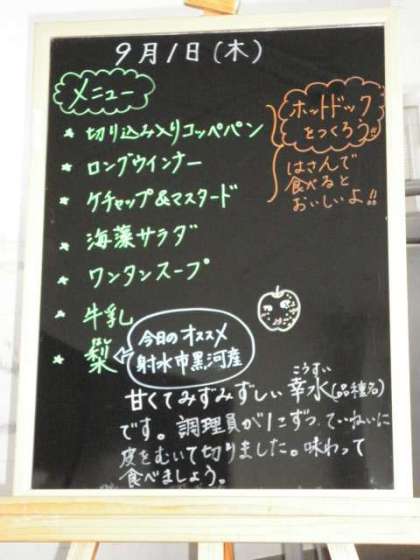 9月1日(木)
メニュー
* 切り込み入りコッペパン
* ロングウインナー
* ケチャップ&マスタード
* 海藻サラダ
* ワンタンスープ
* 牛乳
* 梨
今日のオススメ
射水市黒河産
ホットドック
をつくろう!!
はさんで
食べると
おいしいよ!!
甘くてみずみずしい幸水(品種名)
こうすい
です。調理員が1こずつ、ていねいに
皮をむいて切りました。味わって
食べましょう。